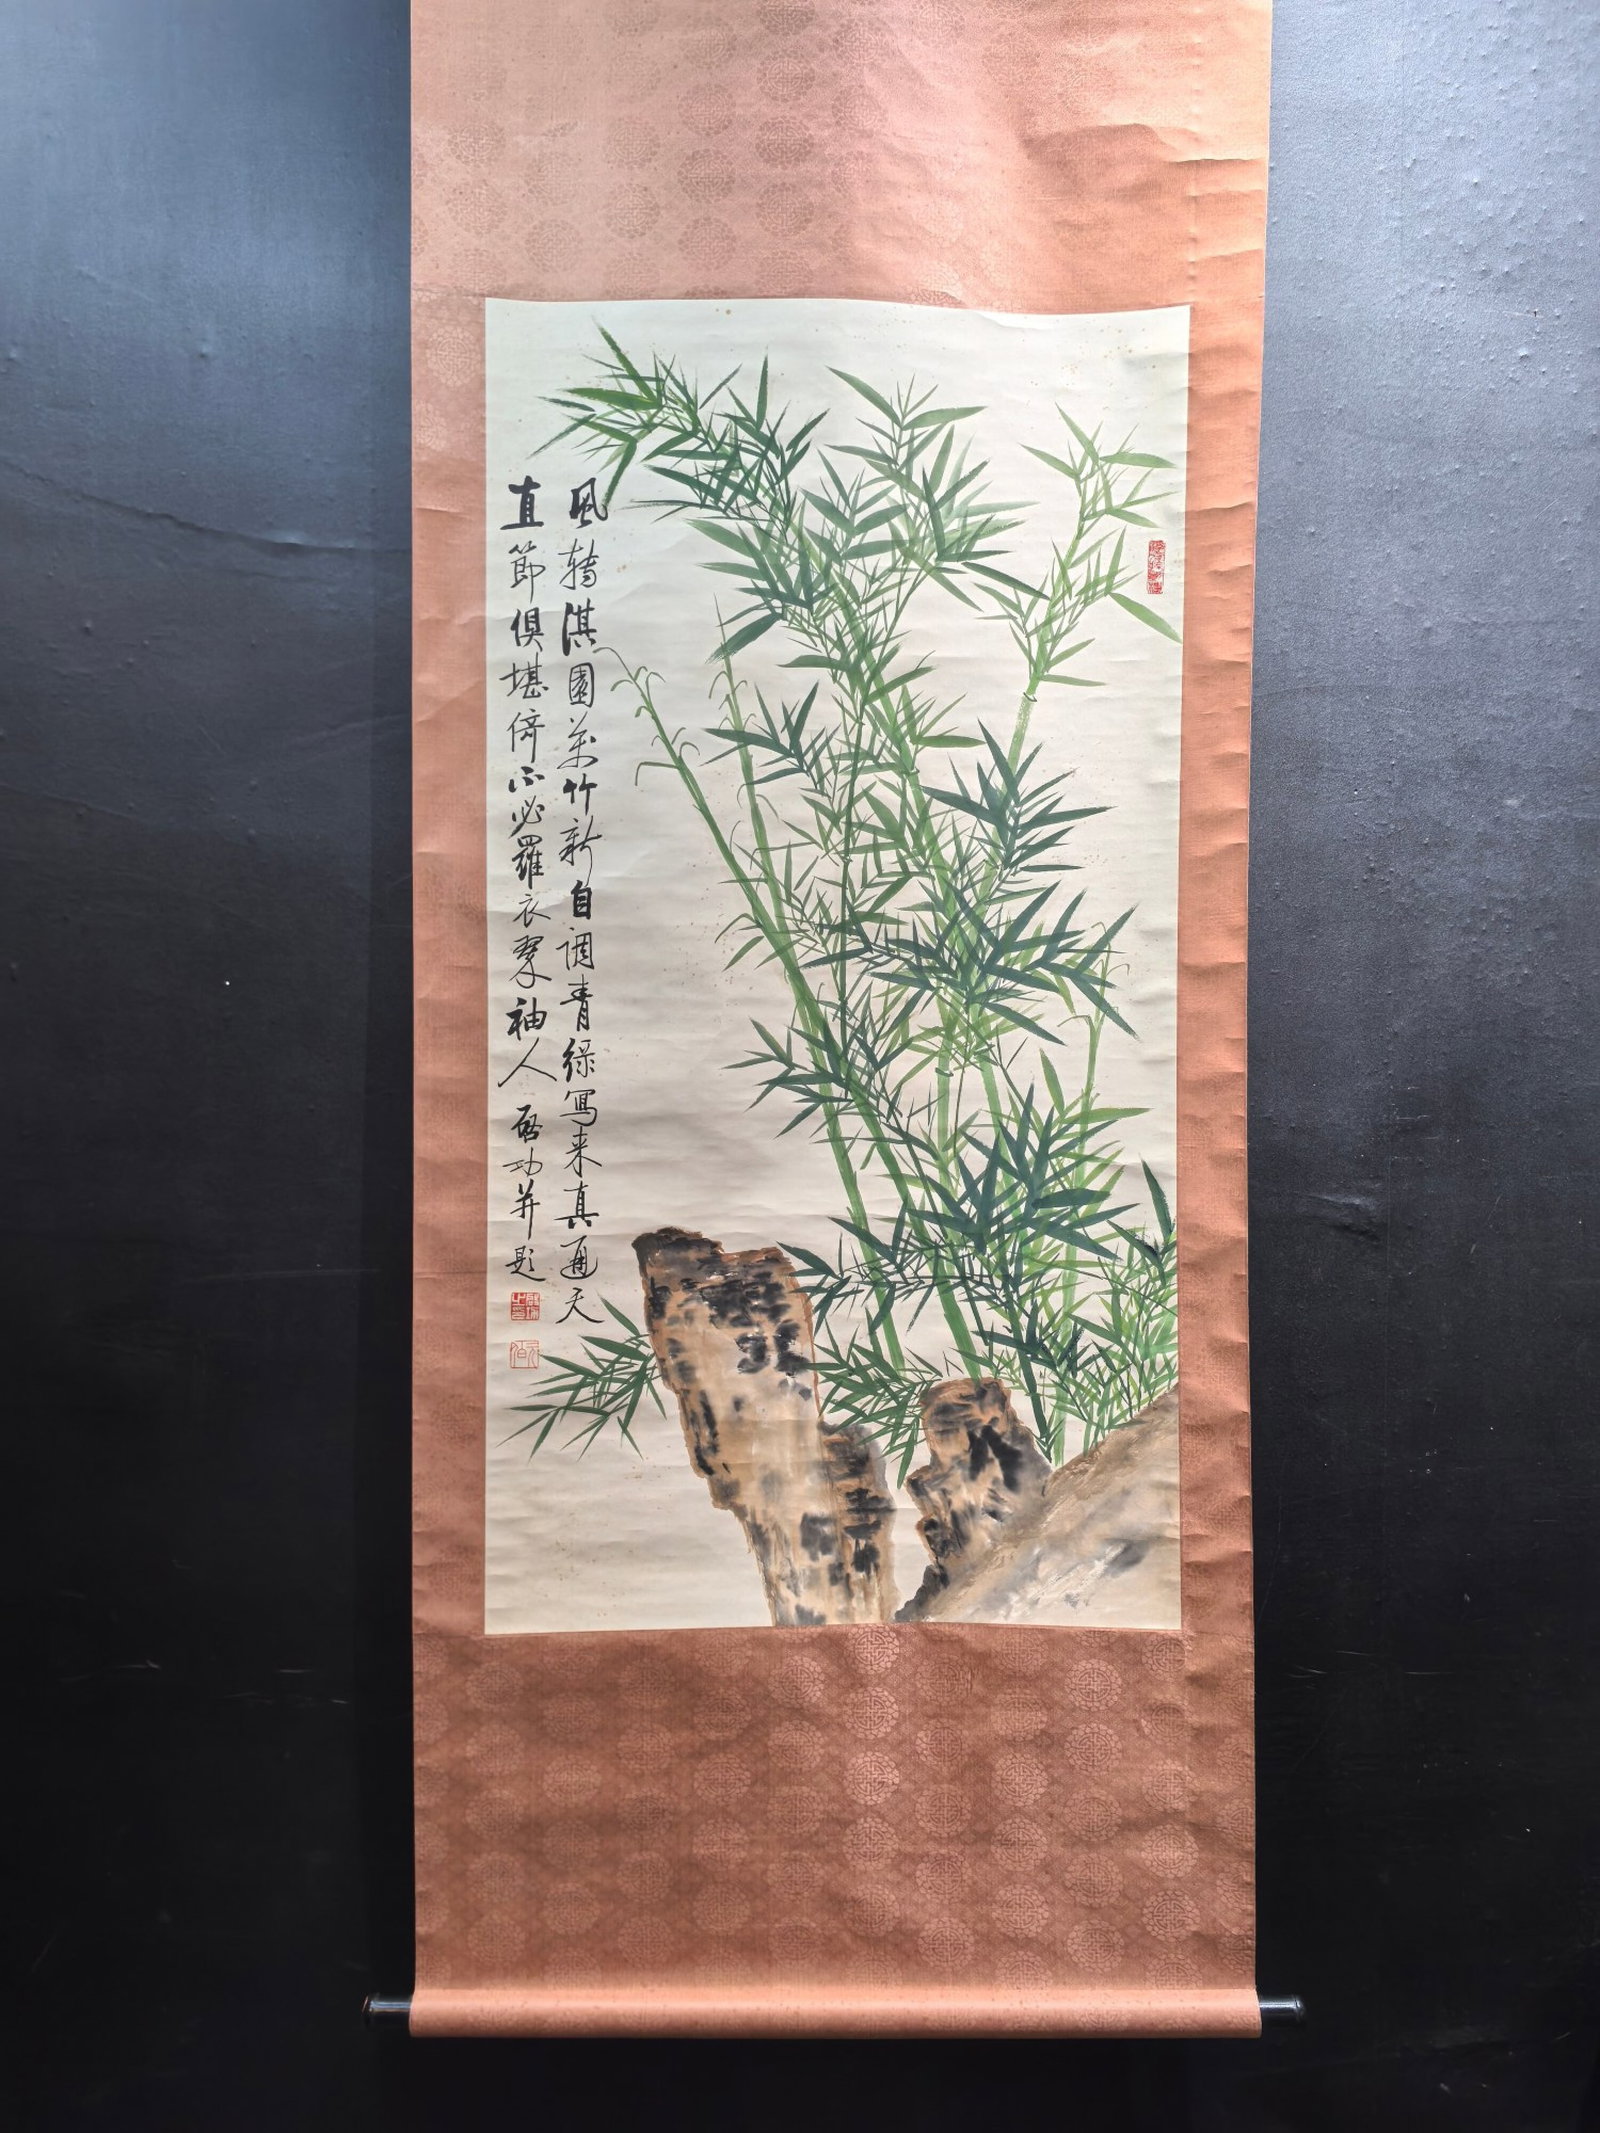 風轉淇園萬竹新自調青綠寫來真通天
直節俱堪倚不必羅衣翠袖人 啓功并題